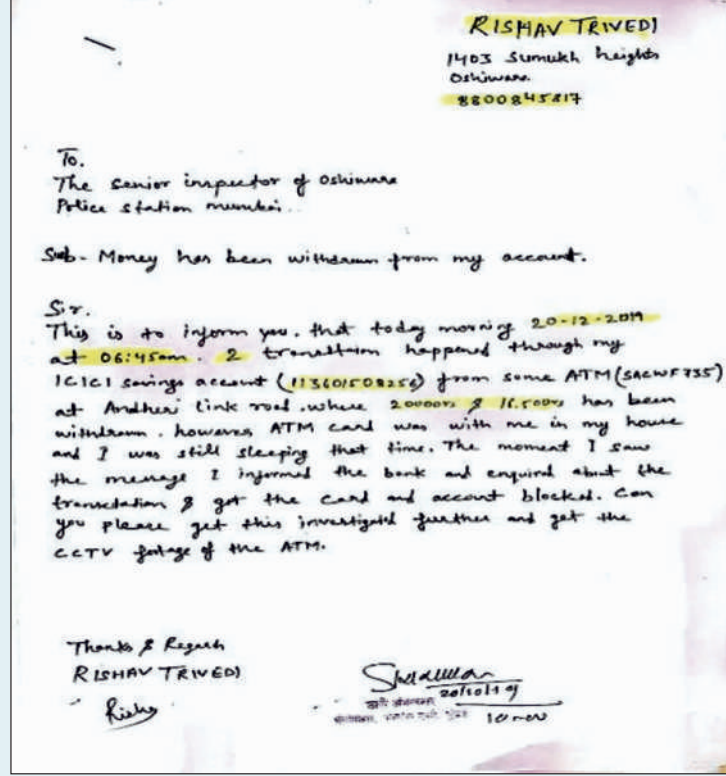 RISHAV TRIVEDI
1403 Sumukh heights
Oshiwara
8800845817
To.
The senior inspector of Oshiwara
Police station mumbai..
Sub- Money has been withdrawn from my account.
Sir.
This is to inform you. that today morning 20-12-2019
at 06:45am. 2 happened through my
ICICI savings account (113601508256) from some ATM (SACWF735)
at Andheri link road. where 20000rs & 16.500rs has been
withdrawn. however ATM card was with me in my house
and I was still sleeping that time. The moment I saw
the message I informed the bank and enquired about the
& got the card and account blocked. Can
you please get this investigated further and get the
CCTV footage of the ATM.
Thanks & Regards
RISHAV TRIVEDI